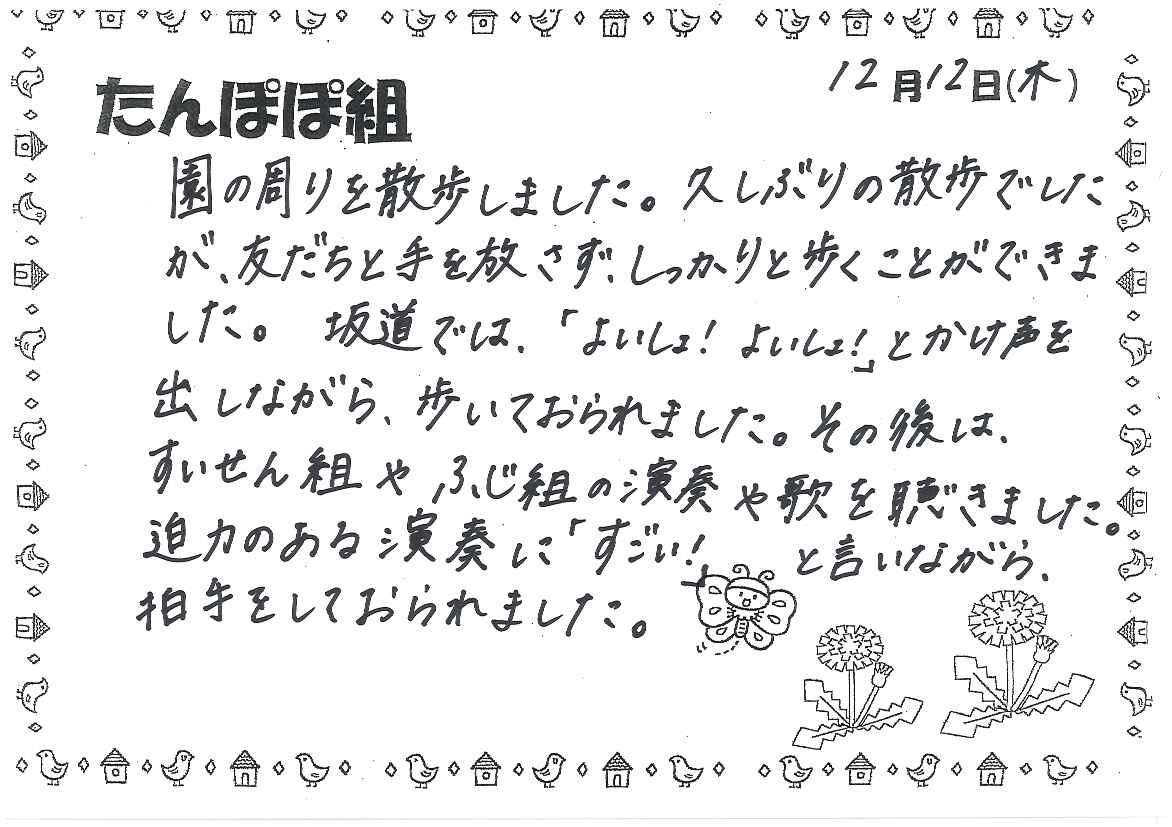 12月12日(木)
たんぽぽ組
園の周りを散歩しました。久しぶりの散歩でした
が、友だちと手を放さず、しっかりと歩くことができま
した。 坂道では、「よいしょ! よいしょ!」とかけ声を
出しながら、歩いておられました。その後は、
すいせん組や、ふじ組の演奏や歌を聴きました。
迫力のある演奏に「すごい!」と言いながら、
拍手をしておられました。